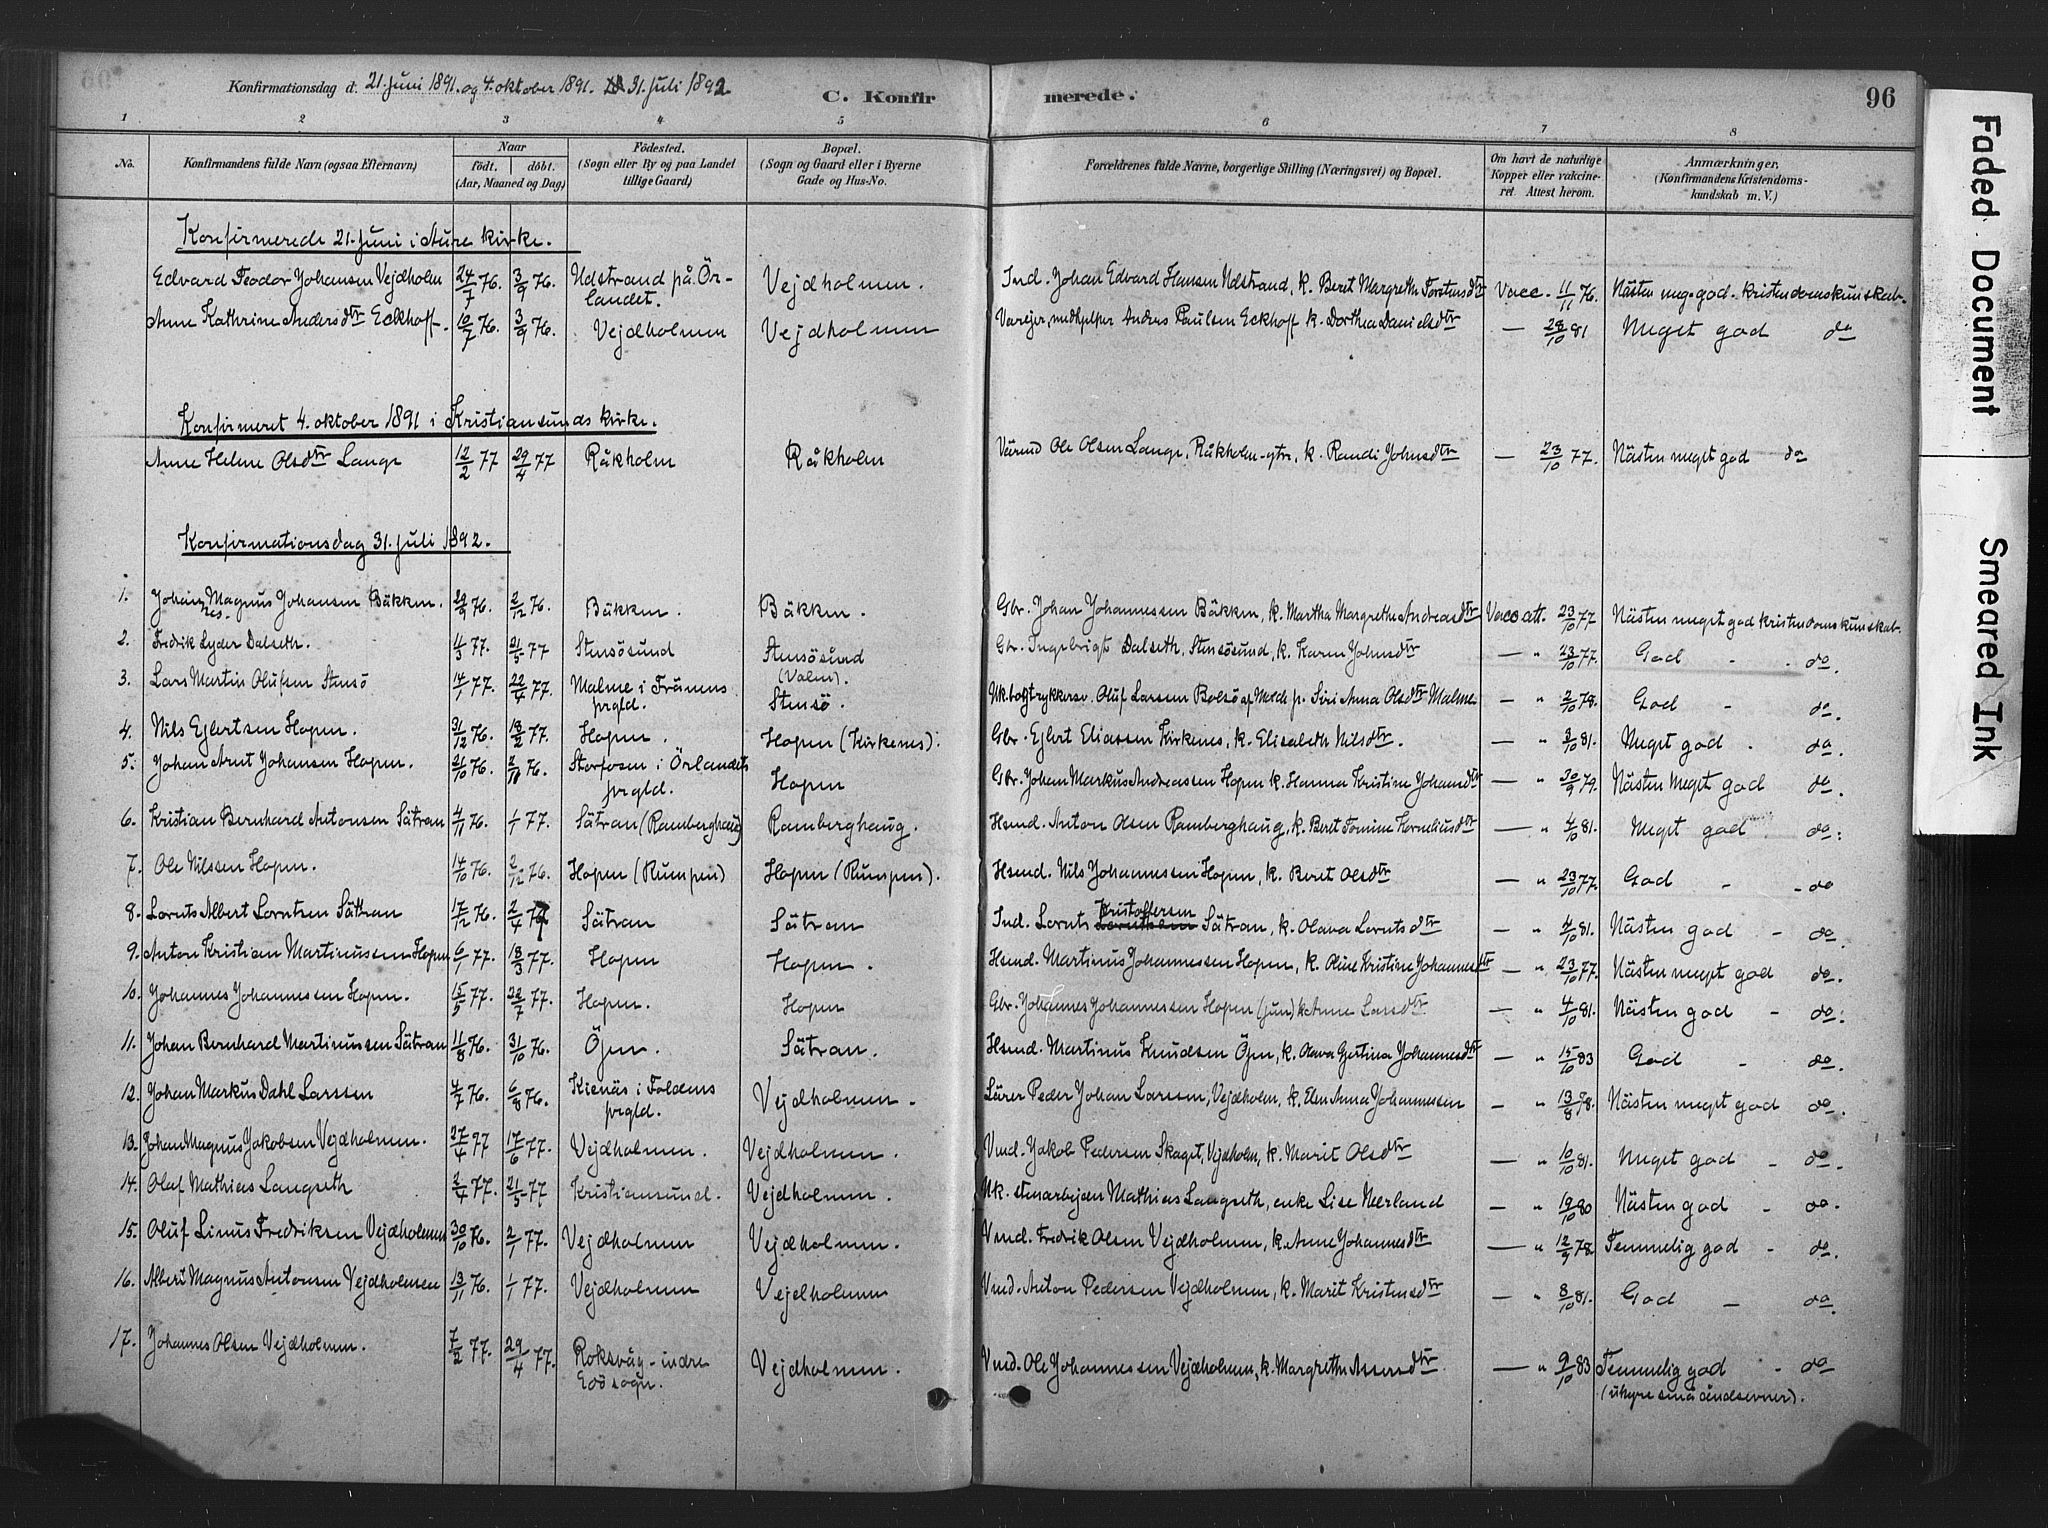 Konfirmationsdag d. 21. juni 1891. og 4. oktober 1891. 31. juli 1892
C. Konfir merede. 96
1 2 3 4 5 6 7 8
No. Konfirmandens fulde Navn (ogsaa Efternavn) Naar født. døbt. (Aar, Maaned og Dag) Fødested. (Sogn eller By og paa Landet tillige Gaard) Bopæl. (Sogn og Gaard eller i Byerne Gade og Hus-No. Forældrenes fulde Navne, borgerlige Stilling (Næringsvei) og Bopæl. Om havt de naturlige Kopper eller vakcineret. Attest herom. Anmærkninger. (Konfirmandens Kristendomskundskab m. V.)
Konfirmerede 21. juni i Aure kirke.
Edvard Teodor Johansen Vejdholm 24/7 76. 3/9 76. Udstrand på Örlandet. Vejdholmen. Ind. Johan Edvard Hansen Udstrand, k. Beret Margrethe Torstensdtr Vacc. 11/11 76. Nästen meg. god. kristendomskunskab.
Anne Kathrine Andersdtr Eckhoff. 10/7 76. 3/9 76. Vejdholmen Vejdholmen Anders Paulsen Eckhoff k. Dorthea Danielsdtr — 28/10 81 Meget god do
Konfirmeret 4. oktober 1891 i Kristiansunds kirke.
Anne Helene Olsdtr Lange 12/2 77 29/4 77 Råkholm Råkholm Ole Olsen Lange, Råkholm-ytre, k. Randi Johnsdtr — 23/10 77. Nästen meget god do
Konfirmationsdag 31. juli 1892.
1. Magnus Johansen Bäkken. 29/9 76. 2/12 76. Bäkken. Bäkken. Gbr. Johan Johannessen Bäkken, k. Martha Margrethe Andreasdtr Vacc att. 23/10 77 Nästen meget god kristendomskunskab.
2. Fredrik Lyder Dalseth. 4/3 77. 21/5 77 Stensösund Stensösund (Valen). Gbr. Ingebrigt Dalseth, Stensösund, k. Karen Johnsdtr — " 23/10 77. God - - do.
3. Lars Martin Olufsen Stensö 14/1 77. 22/4 77. Malme i Fränens prgld. Stensö. Oluf Larsen Bolsö af Molde p. Siri Anna Olsdtr Malme — " 2/10 78. God - do.
4. Nils Ejlertsen Hopen. 31/12 76. 18/2 77. Hopen. Hopen (Kirkenes). Gbr. Ejlert Eliassen Kirkenes, k. Elisabeth Nilsdtr. — " 3/10 81. Meget god . do.
5. Johan Arnt Johansen Hopen. 21/10 76. 76. Storfosen i Örlandets prgld. Hopen Gbr. Johan Markus Andreassen Hopen k. Hanna Kristine Johansdtr — " 30/9 79. Nästen meget god do.
6. Kristian Bernhard Antonsen Sätran 4/11 76. 1/1 77. Sätran (Ramberghaug) Ramberghaug. Hsmd. Anton Olsen Ramberghaug, k. Beret Tomine Kornelius dtr — " 4/10 81. Meget god do:
7. Ole Nilssen Hopen. 14/10 76. 2/12 76. Hopen (Rumpen) Hopen (Rumpen). Hsmd. Nils Johannessen Hopen, k. Beret Olsdtr — " 23/10 77. God - - do
8. Lorents Albert Lorntsen Sätran 17/12 76. 2/4 77 Sätran Sätran Ind. Lornts Kristoffersen Sätran, k. Olava Lorntsdtr — " 4/10 81. Nästen god - do.
9. Anton Kristian Martinussen Hopen 6/1 77. 18/3 77. Hopen Hopen. Hsmd. Martinus Johannessen Hopen, k. Oline Kristine Johannesdtr — " 23/10 77. Nästen meget god do.
10. Johannes Johannessen Hopen. 15/5 77. 22/7 77. Hopen. Hopen Gbr. Johannes Johannessen Hopen (jun) k. Anne Larsdtr — " 4/10 81. Nästen god - do:
11. Johan Bernhard Martinussen Sätran 11/8 76. 31/10 76. Öjen. Sätran. Hsmd. Martinus Knudsen Öjen, k. Olava Gjertina Johannesdtr — " 15/10 83 God - do.
12. Johan Markus Dahl Larssen 4/7 76. 6/8 76. Kienäs i Foldens prgld. Vejdholmen. Lärer Peder Johan Larssen, Vejdholm, k. Elen Anna Johannessen — " 13/8 78. Nästen meget god do.
13. Johan Magnus Jakobsen Vejdholmen. 27/4 77 17/6 77. Vejdholmen. Vejdholmen. Vmd. Jakob Pedersen Skaget, Vejdholm, k. Marit Olsdtr — " 10/10 81. Meget god - do.
14. Olaf Mathias Langseth 2/4 77. 21/5 77 Kristiansund. Vejdholmen. Uk. stenarbejder Mathias Langseth, enke Lise Neerland — " 19/10 80 Nästen god - do.
15. Oluf Linus Fredriksen Vejdholmen 30/10 76. 2/1 77. Vejdholmen Vejdholmen. Vmd. Fredrik Olsen Vejdholmen, k. Anne Johannesdtr — " 12/9 78 Temmelig god - do.
16. Albert Magnus Antonsen Vejdholmen 13/11 76. 1/1 77. Vejdholmen Vejdholmen Vmd. Anton Pedersen Vejdholmen, k. Marit Kristensdtr — " 8/10 81. God - do.
17. Johannes Olsen Vejdholmen. 7/2 77. 29/4 77. Roksvåg - indre Edösogn. Vejdholmen Vmd. Ole Johannessen Vejdholmen, k. Margrethe Assersdtr — " 9/10 83 Temmelig god - do (uhyre små åndsevner).
Faded Document
Smeared Ink